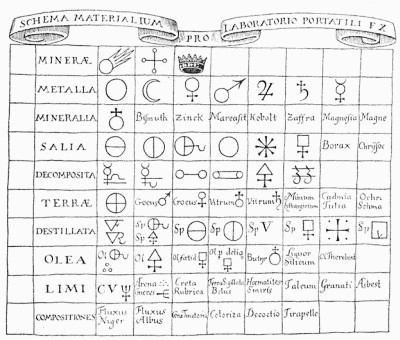 SCHEMA MATERIALIUM PRO LABORATORIO PORTATILI
MINERÆ
METALLA
MINERALIA Bismuth Zinck Marcasit Kobolt Zaffra Magnesia Magne
SALIA Borax Chrysoc
DECOMPOSITA
TERRÆ Crocus Crocus Vitrum Vitrum Minium Cadmia Tutia Ochra Schma
DESTILLATA Sp Sp Sp Sp Sp V Sp Sp
OLEA Ol Ol Ol foetid Ol p deliq Butyr Liquor Silicum Ol Therebint
LIMI CV Arena Creta Rubrica Terra Sigillata Bolus Hæmatites Smiris Talcum Granati Asbest
COMPOSITIONES Fluxus Niger Fluxus Albus Coloriza Decoctio Tirapelle